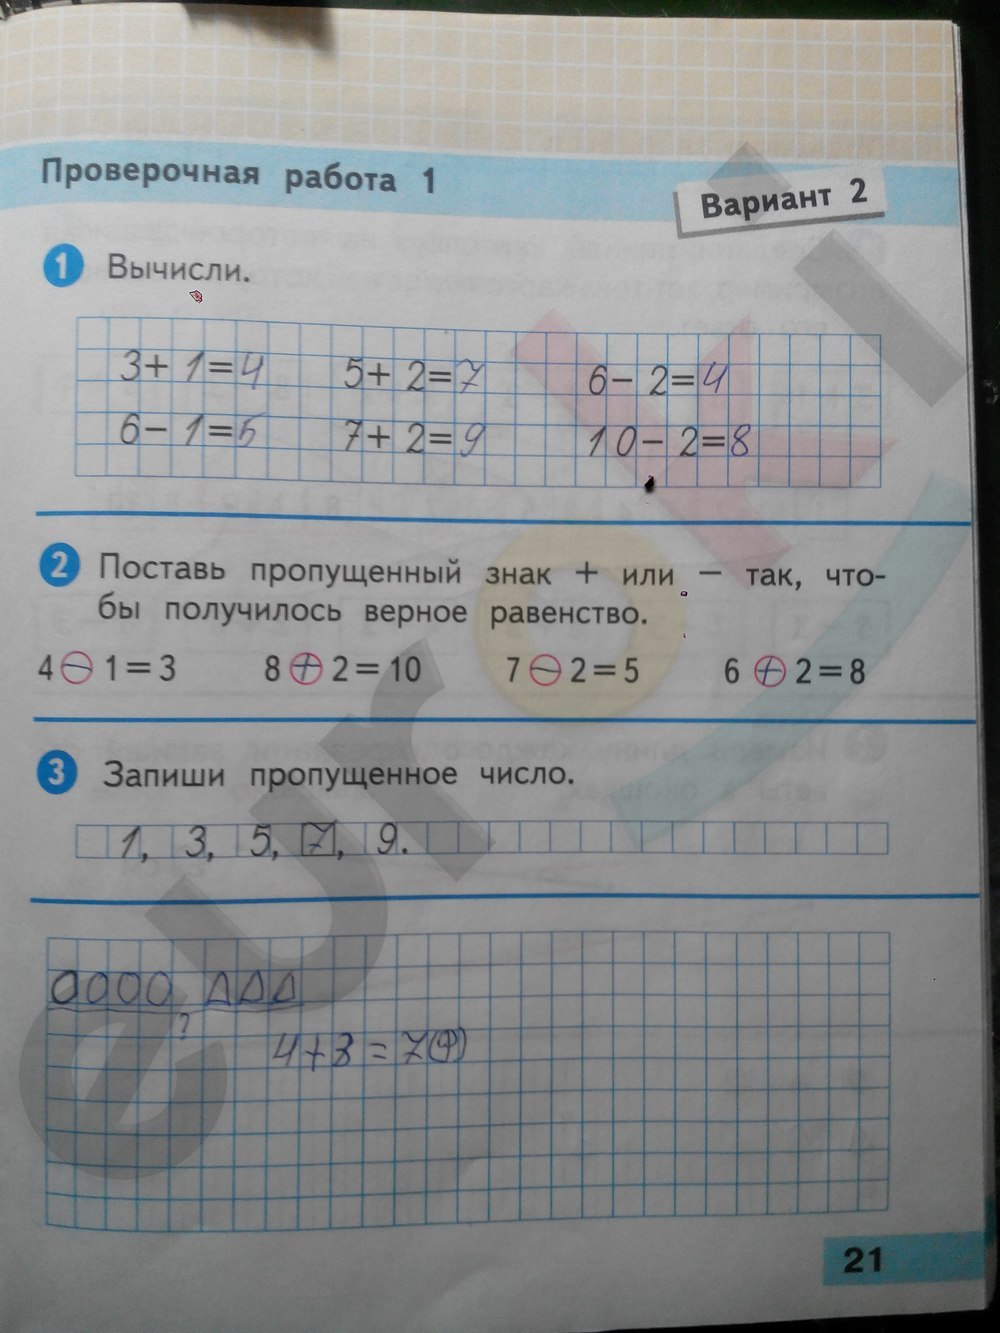 Проверочная работа 1
Вариант 2
1 Вычисли.
3+ 1=4 5+ 2=7 6- 2=4
6- 1=5 7+ 2=9 10- 2=8
2 Поставь пропущенный знак + или - так, что-
бы получилось верное равенство.
4 - 1=3 8 + 2=10 7 - 2=5 6 + 2=8
3 Запиши пропущенное число.
1, 3, 5, 7, 9.
?
4+3=7(Ф)
21
euroki